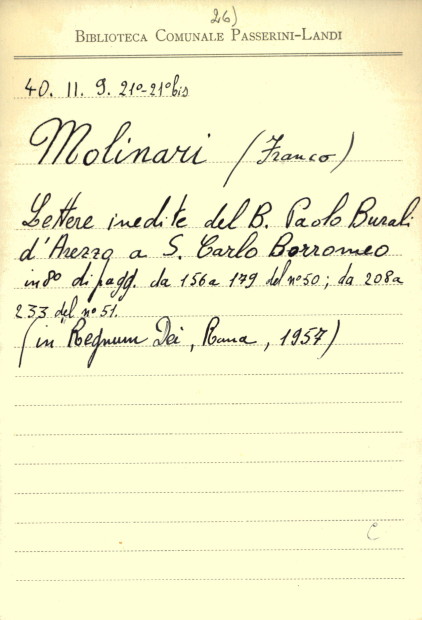 26)
BIBLIOTECA COMUNALE PASSERINI-LANDI
40. 11. 9. 21º-21º bis
Molinari (Franco)
Lettere inedite del B. Paolo Burali
d'Arezzo a S. Carlo Borromeo
in 8º di pagg. da 156 a 179 del nº 50; da 208 a
233 del nº 51.
(in "Regnum Dei, Roma, 1957)
C